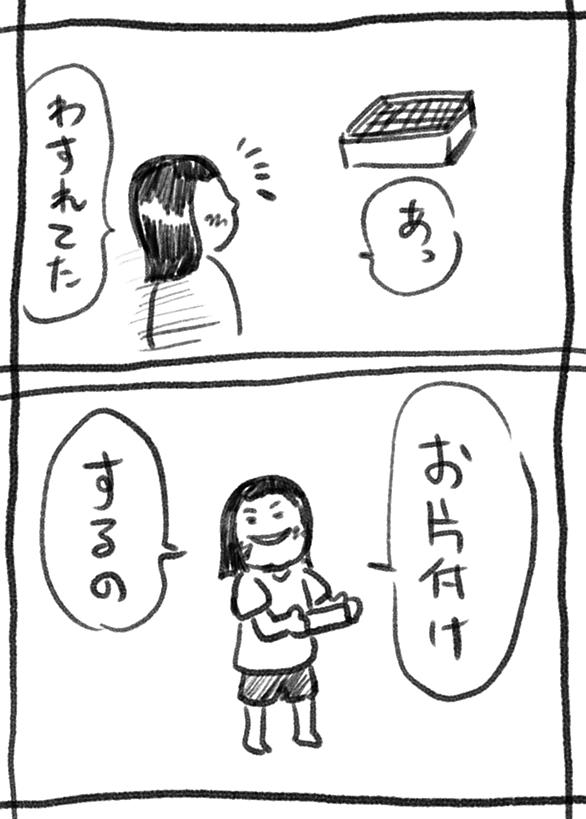 あっ
わすれてた
お片付け
するの